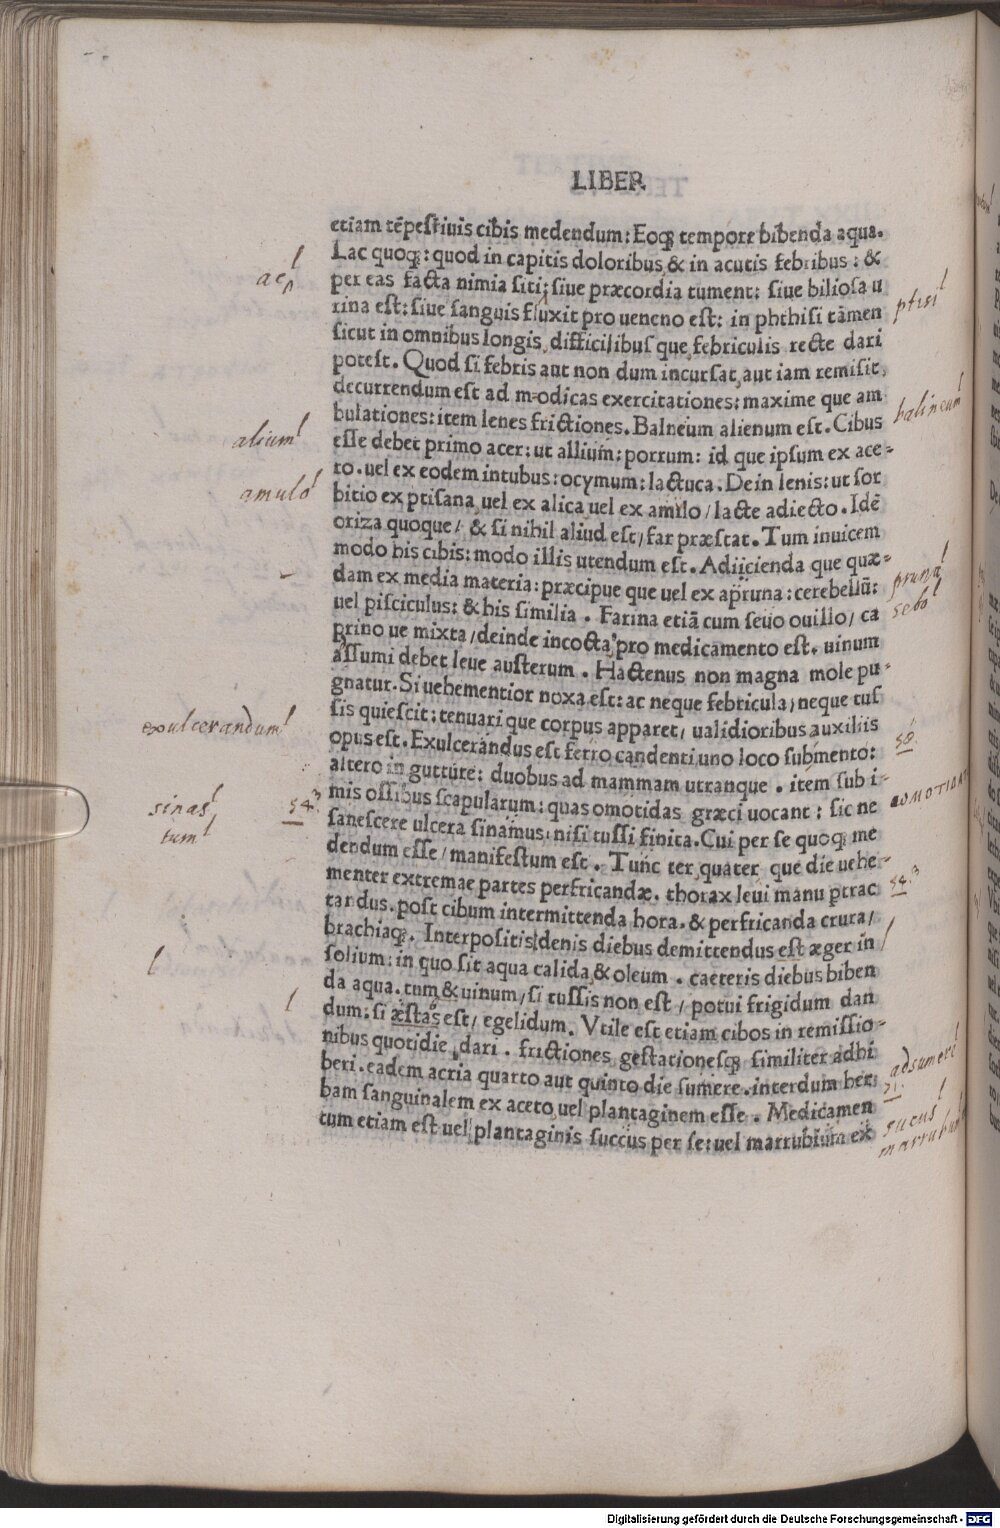 LIBER
etiam tēpeſtiuis cibis medendum: Eoqꝫ tempore bibenda aqua.
Lac quoqꝫ: quod in capitis doloribus & in acutis febribus: &
per eas facta nimia siti: ſiue præcordia tument: ſiue bilioſa u
rina eſt: ſiue ſanguis fluxit pro ueneno eſt: in phthiſi tāmen
ſicut in omnibus longis difficilibuſ que febriculis recte dari
poteſt. Quod ſi febris aut non dum incurſat, aut iam remiſit,
decurrendum eſt ad modicas exercitationes: maxime que am
bulationes: item lenes frictiones. Balneum alienum eſt. Cibus
eſſe debet primo acer: ut allium: porrum: id que ipſum ex ace-
to. uel ex eodem intubus: ocymum: lactuca. Dein lenis: ut ſor
bitio ex ptiſana uel ex alica uel ex amilo / lacte adiecto. Idē
oriza quoque / & ſi nihil aliud eſt / far præſtat. Tum inuicem
modo his cibis: modo illis utendum eſt. Adiicienda que quæ-
dam ex media materia: præcipue que uel ex apruna: cerebellū:
uel piſciculus: & his ſimilia. Farina etiā cum ſeuo ouillo / ca
prino ue mixta / deinde incocta pro medicamento eſt. uinum
aſſumi debet leue auſterum. Hactenus non magna mole pu-
gnatur. Si uehementior noxa eſt: ac neque febricula, neque tuſ
ſis quieſcit: tenuari que corpus apparet / ualidioribus auxiliis
opus eſt. Exulcerandus eſt ferro candenti uno loco ſub mento:
altero in gutture: duobus ad mammam utranque. item ſub i-
mis oſſibus ſcapularum: quas omotidas græci uocant: ſic ne
ſaneſcere ulcera ſinamus, niſi tuſſi finita. Cui per ſe quoqꝫ me
dendum eſſe / manifeſtum eſt. Tunc ter quater que die uehe-
menter extremae partes perfricandæ. thorax leui manu ptrac
tandus. poſt cibum intermittenda hora. & perfricanda crura /
brachiaqꝫ. Interpoſitis denis diebus demittendus eſt æger in
ſolium: in quo ſit aqua calida & oleum. caeteris diebus biben
da aqua. tum & uinum / ſi tuſſis non eſt / potui frigidum dan
dum: ſi æſtas eſt / egelidum. Vtile eſt etiam cibos in remiſſio-
nibus quotidie dari. frictiones geſtationeſqꝫ ſimiliter adhi
beri. eadem acria quarto aut quinto die ſumere. interdum her
bam ſanguinalem ex aceto uel plantaginem eſſe. Medicamen
tum etiam eſt uel plantaginis ſuccus per ſe: uel marrubium ex
ac
alium
amulo
exulcerandum
sinas
tum
54.
ptisi
balineum
pruna
sebo
58.
54.
adsumere
sucus
marrubium
Digitalisierung gefördert durch die Deutsche Forschungsgemeinschaft - DFG